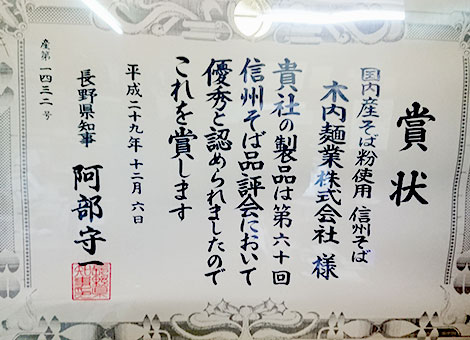 賞状
国内産そば粉使用 信州そば
木内麺業株式会社 様
貴社の製品は第六十回
信州そば品評会において
優秀と認められましたので
これを賞します
平成二十九年 十二月 六日
長野県知事 阿部守一
産第一四三二号